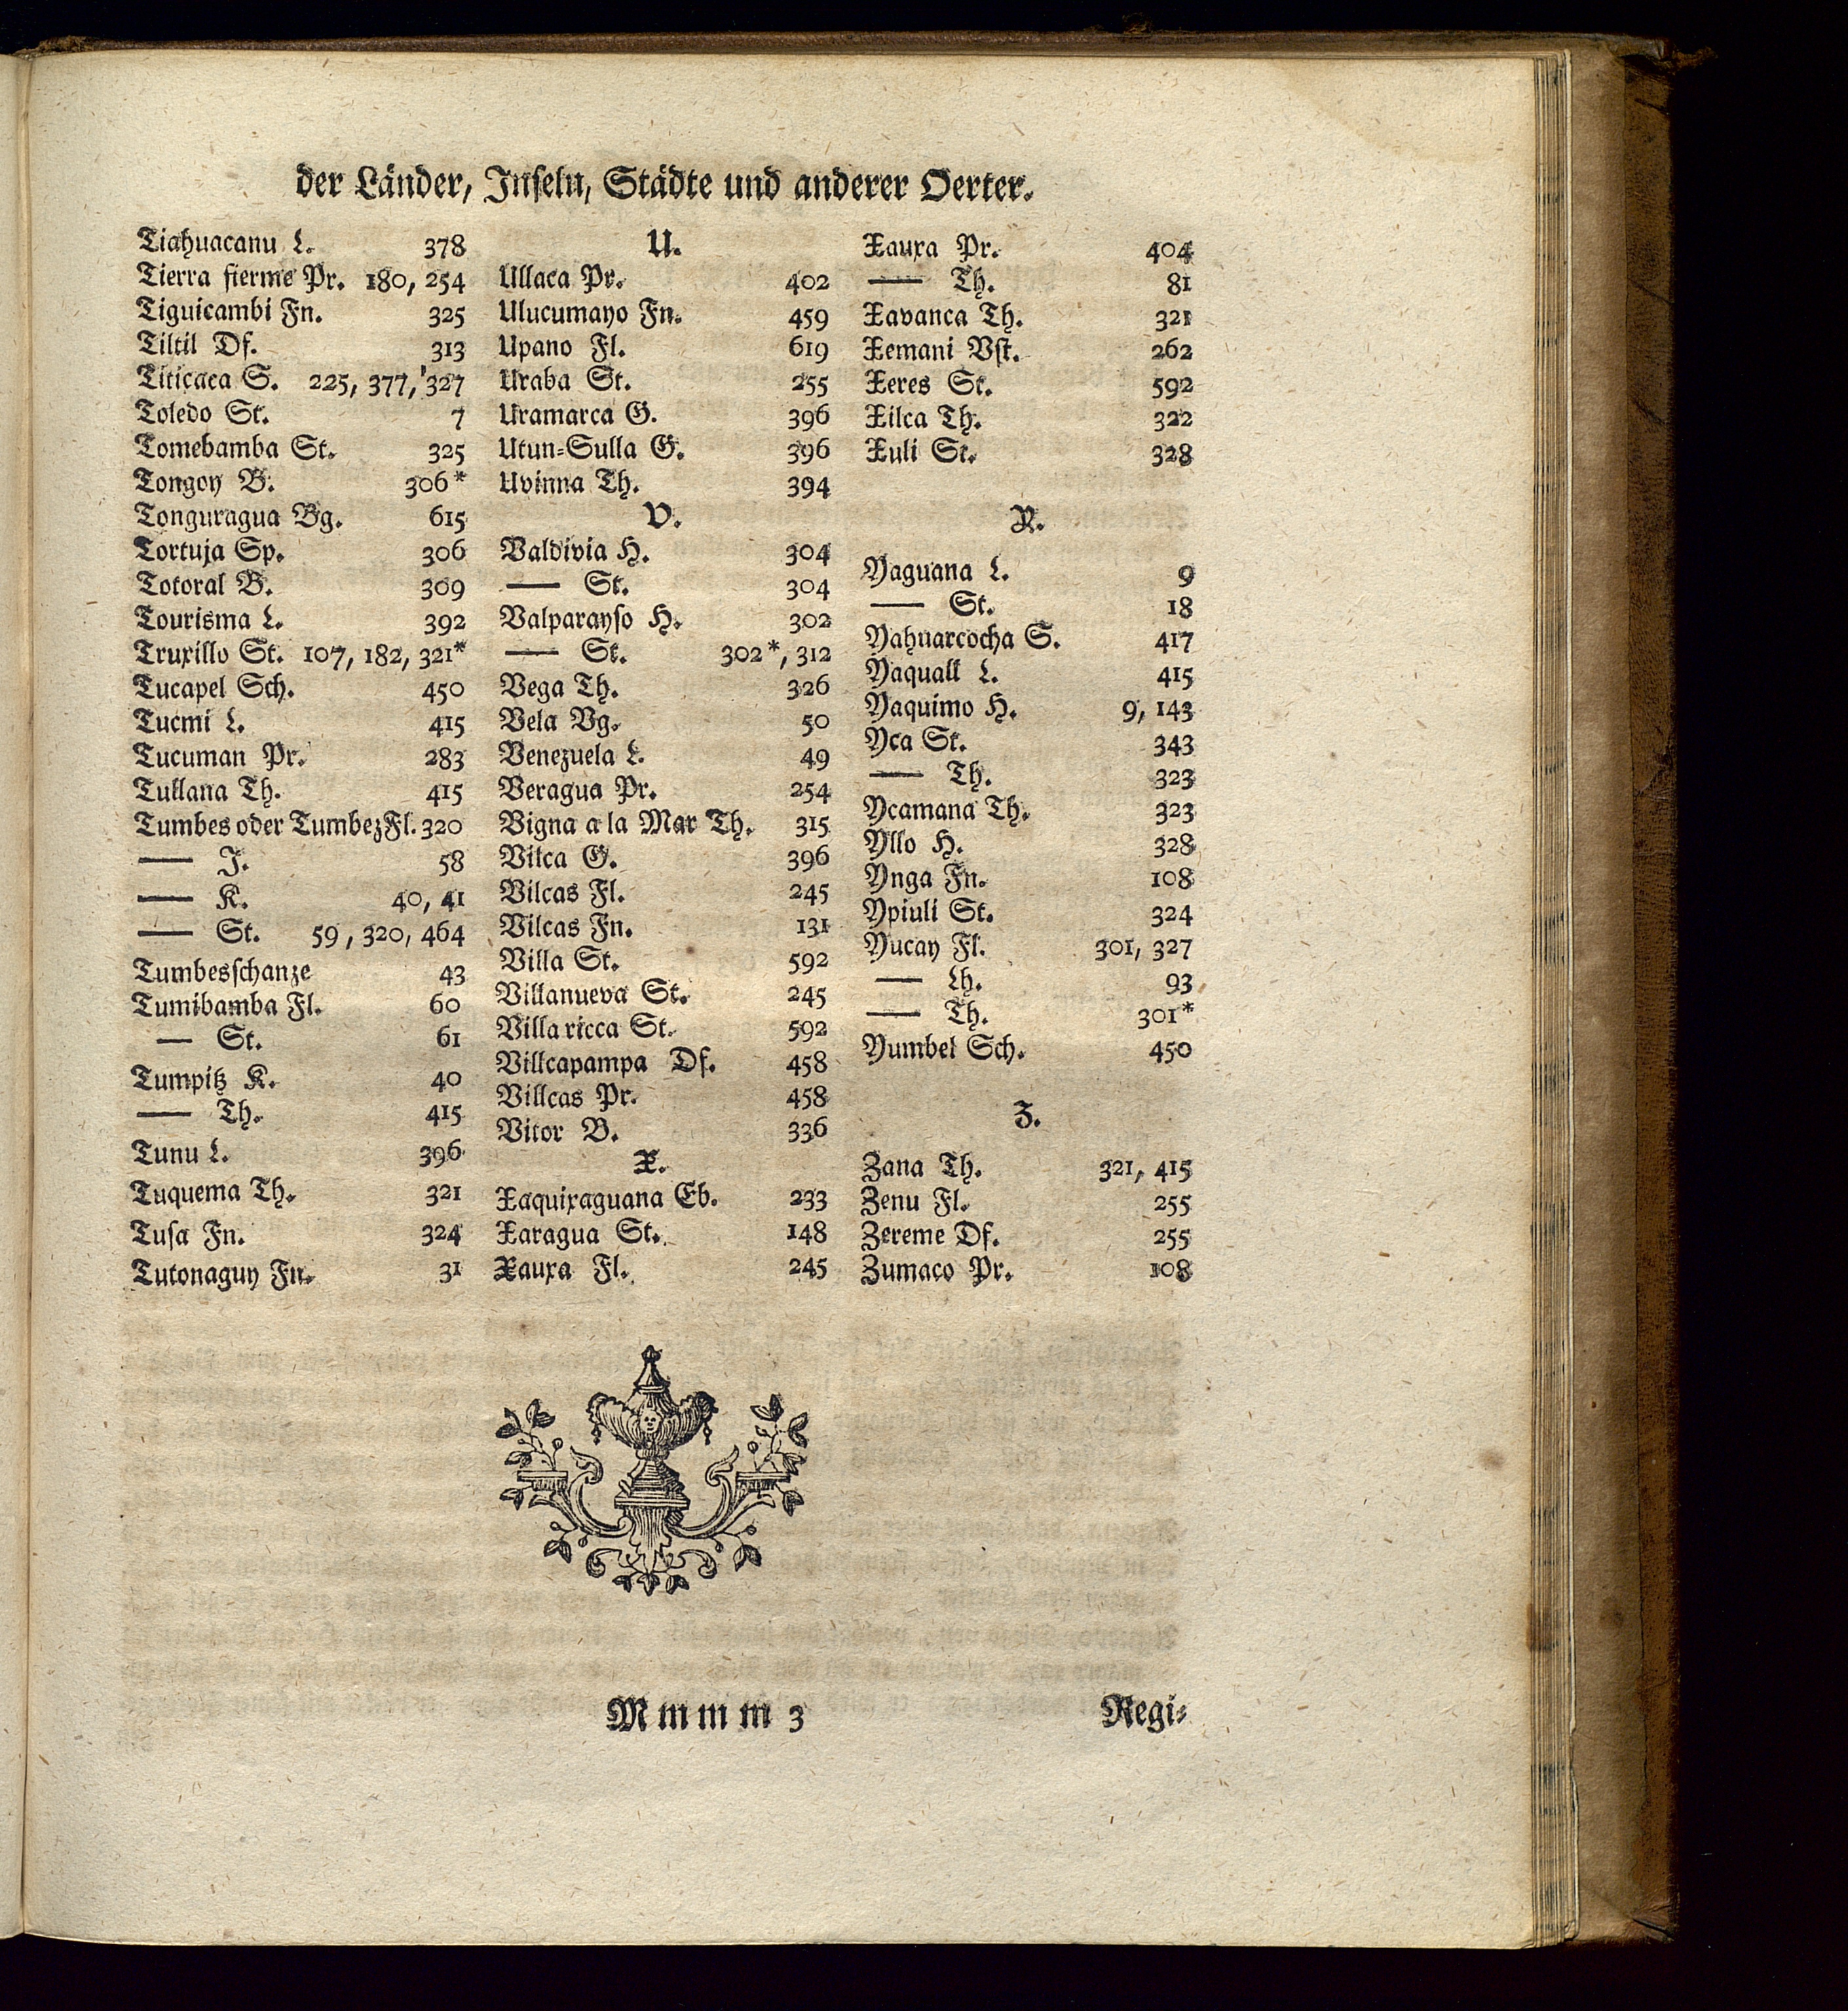 der Länder, Inseln, Städte und anderer Oerter.
Tiahuacanu L. 378
Tierra fierme Pr. 180, 254
Tiguicambi Fn. 325
Tiltil Df. 313
Titicaca S. 225, 377, 327
Toledo St. 7
Tomebamba St. 325
Tongoy B. 306*
Tonguragua Bg. 615
Tortuja Sp. 306
Totoral B. 309
Tourisma L. 392
Truxillo St. 107, 182, 321*
Tucapel Sch. 450
Tucmi L. 415
Tucuman Pr. 283
Tullana Th. 415
Tumbes oder Tumbez Fl. 320
— J. 58
— K. 40, 41
— St. 59, 320, 464
Tumbesschanze 43
Tumibamba Fl. 60
— St. 61
Tumpitz K. 40
— Th. 415
Tunu L. 396
Tuquema Th. 321
Tusa Fn. 324
Tutonaguy Fn. 31
U.
Ullaca Pr. 402
Ulucumayo Fn. 459
Upano Fl. 619
Uraba St. 255
Uramarca G. 396
Utun-Sulla G. 396
Uvinna Th. 394
V.
Valdivia H. 304
— St. 304
Valparayso H. 302
— St. 302*, 312
Vega Th. 326
Vela Vg. 50
Venezuela L. 49
Veragua Pr. 254
Vigna a la Mar Th. 315
Vilca G. 396
Vilcas Fl. 245
Vilcas Fn. 131
Villa St. 592
Villanueva St. 245
Villa ricca St. 592
Villcapampa Df. 458
Villcas Pr. 458
Vitor B. 336
X.
Xaquixaguana Eb. 233
Xaragua St. 148
Xauxa Fl. 245
Xauxa Pr. 404
— Th. 81
Xavanca Th. 321
Xemani Vst. 262
Xeres St. 592
Xilca Th. 322
Xuli St. 328
Y.
Yaguana L. 9
— St. 18
Yahuarcocha S. 417
Yaquall L. 415
Yaquimo H. 9, 143
Yca St. 343
— Th. 323
Ycamana Th. 323
Yllo H. 328
Ynga Fn. 108
Ypiuli St. 324
Yucay Fl. 301, 327
— Lh. 93
— Th. 301*
Yumbel Sch. 450
Z.
Zana Th. 321, 415
Zenu Fl. 255
Zereme Df. 255
Zumaco Pr. 108
Mmmm 3 Regi-